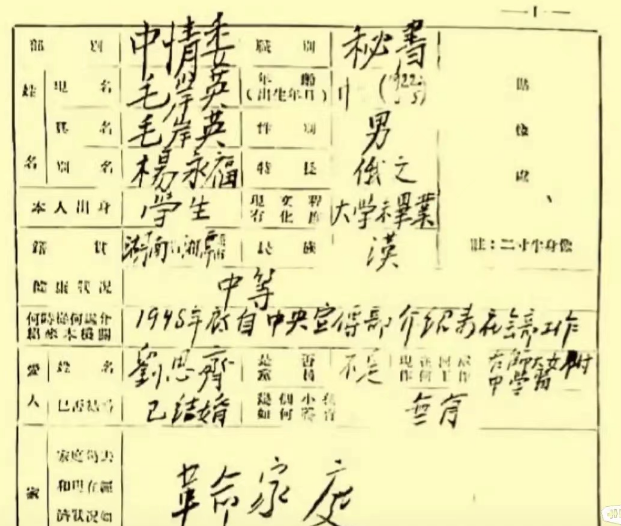 — 1
部別 中情委 職別 秘書
姓名 現名 毛岸英 年齡(出生年月) (1922
真名 毛岸英 性別 男 貼像處
別名 楊永福 特長 俄文
本人出身 学生 現有文化程度 大学未畢業
籍貫 湖南 湘 民族 漢 註：二寸半身像
健康狀況 中等
何時從何處介紹來本機關 1948年底自中央宣傳部介紹來在会部工作
愛人 姓名 劉思齊 是否黨員 不是 現在何處作何工作 師大女附中学習
已否結婚 已結婚 幾個小孩如何養育 無有
家 家庭過去和現在經濟狀況如 革命家庭